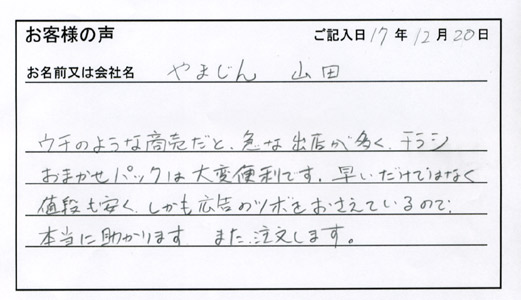 お客様の声 ご記入日 17年 12月 20日
お名前又は会社名 やまじん 山田
ウチのような商売だと、急な出店が多く、チラシ
おまかせパックは大変便利です。早いだけではなく
値段も安く、しかも広告のツボをおさえているので、
本当に助かります。また、注文します。